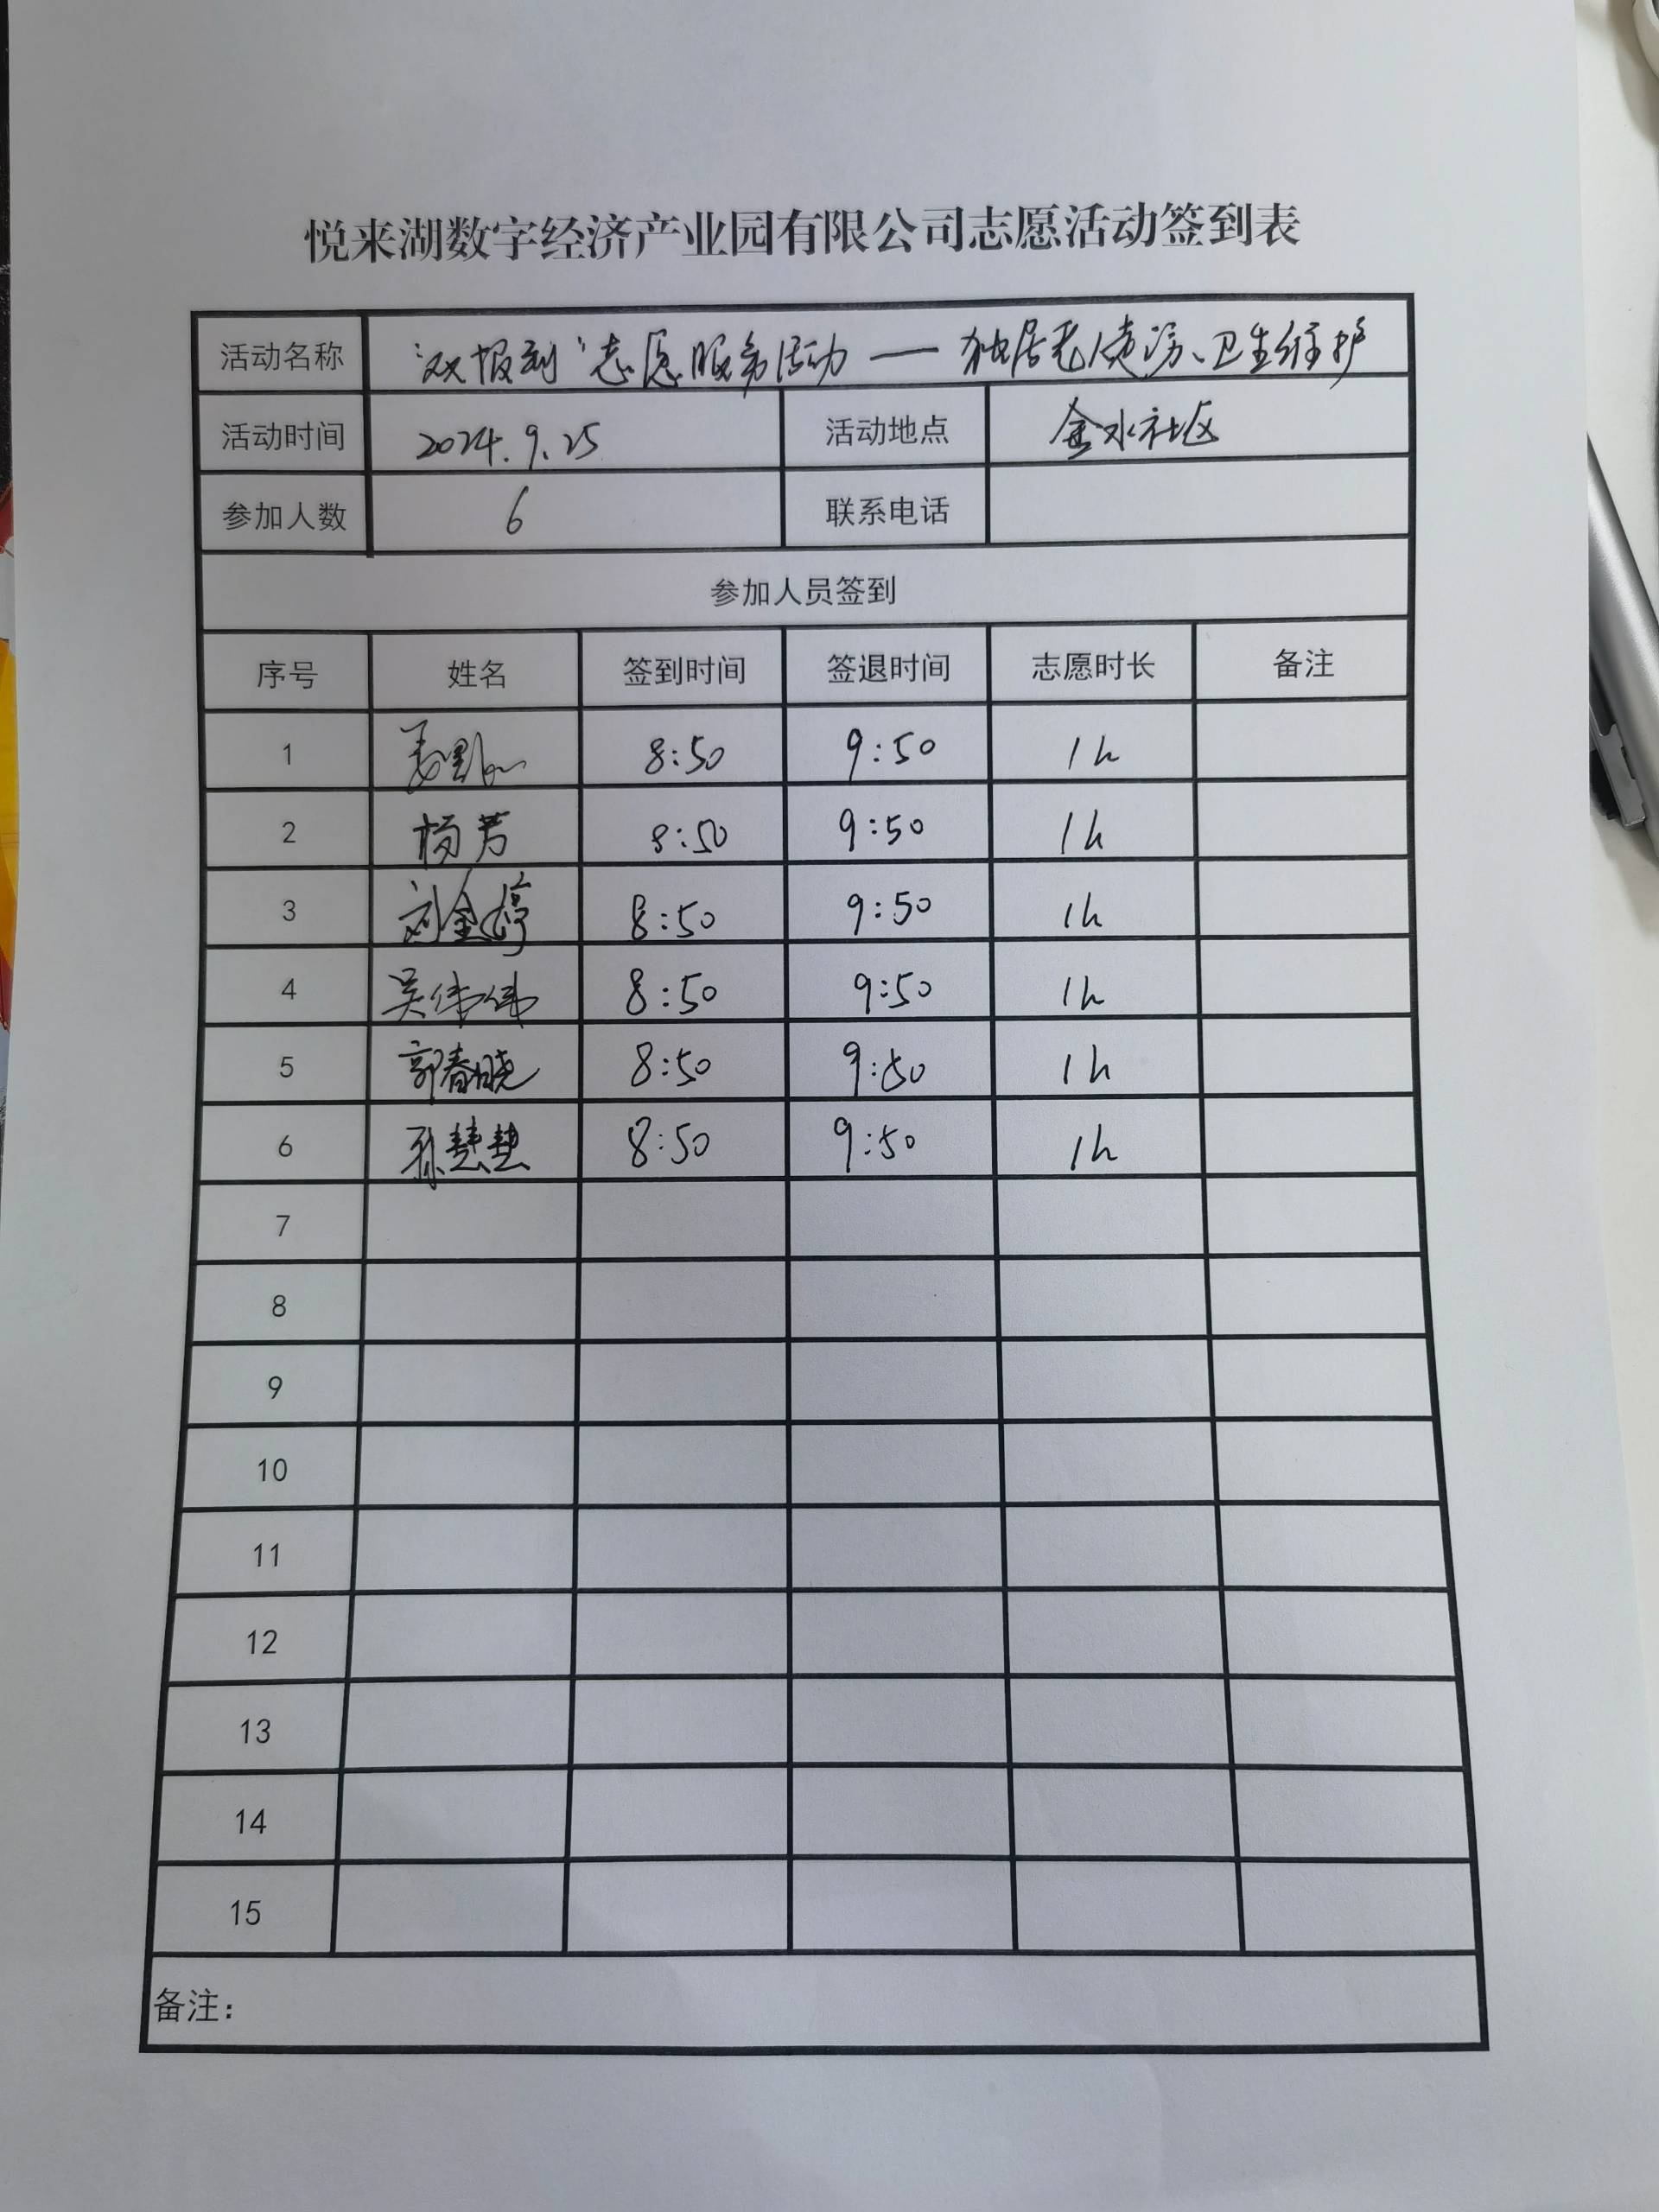 悦来湖数字经济产业园有限公司志愿活动签到表
活动名称 “双报到”志愿服务活动——独居老人走访、卫生维护
活动时间 2024.9.25 活动地点 金水社区
参加人数 6 联系电话
参加人员签到
序号 姓名 签到时间 签退时间 志愿时长 备注
1 8:50 9:50 1h
2 杨芳 8:50 9:50 1h
3 刘金婷 8:50 9:50 1h
4 吴伟伟 8:50 9:50 1h
5 郭春晓 8:50 9:50 1h
6 孙慧慧 8:50 9:50 1h
7
8
9
10
11
12
13
14
15
备注：